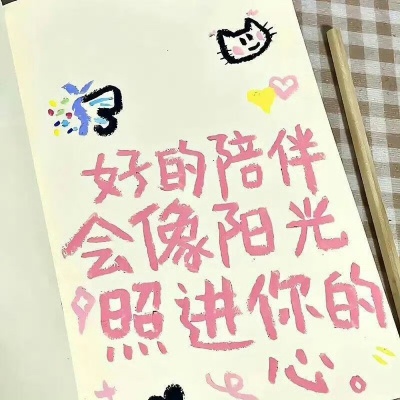 好的陪伴
会像阳光
照进你的
心。